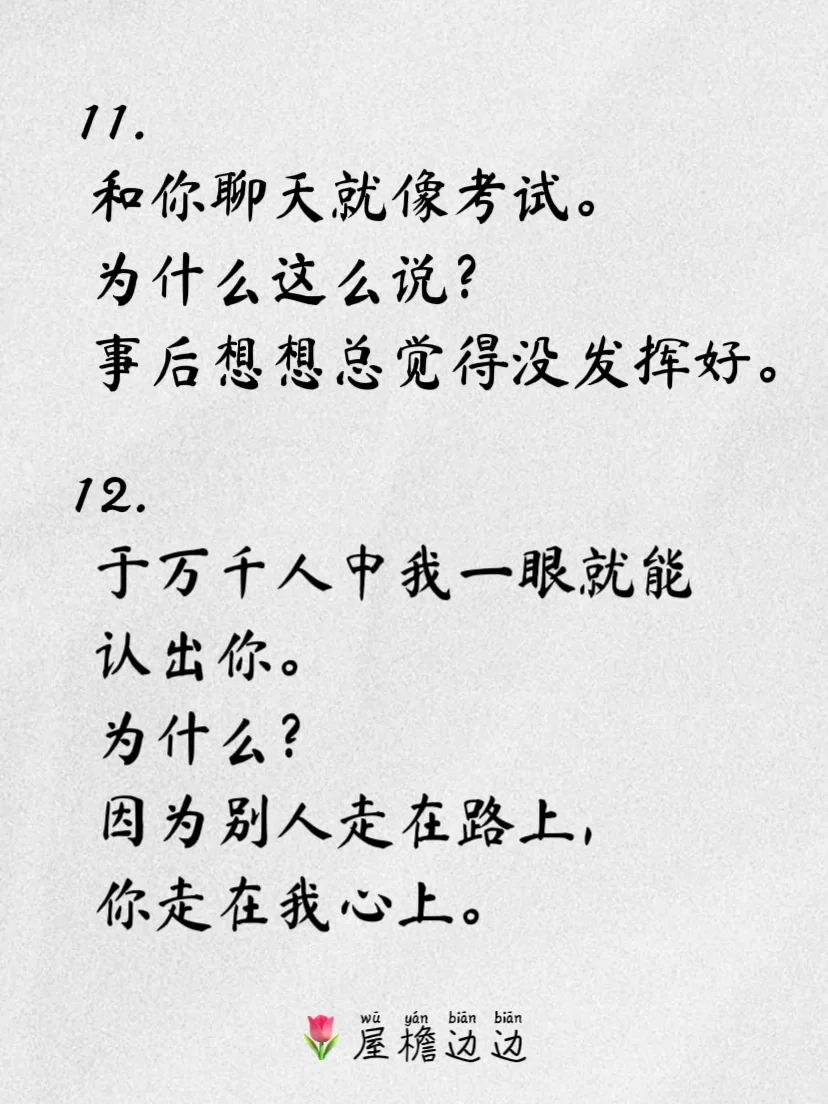 11.
和你聊天就像考试。
为什么这么说?
事后想想总觉得没发挥好。
12.
于万千人中我一眼就能
认出你。
为什么?
因为别人走在路上,
你走在我心上。
wū yán biān biān
屋檐边边